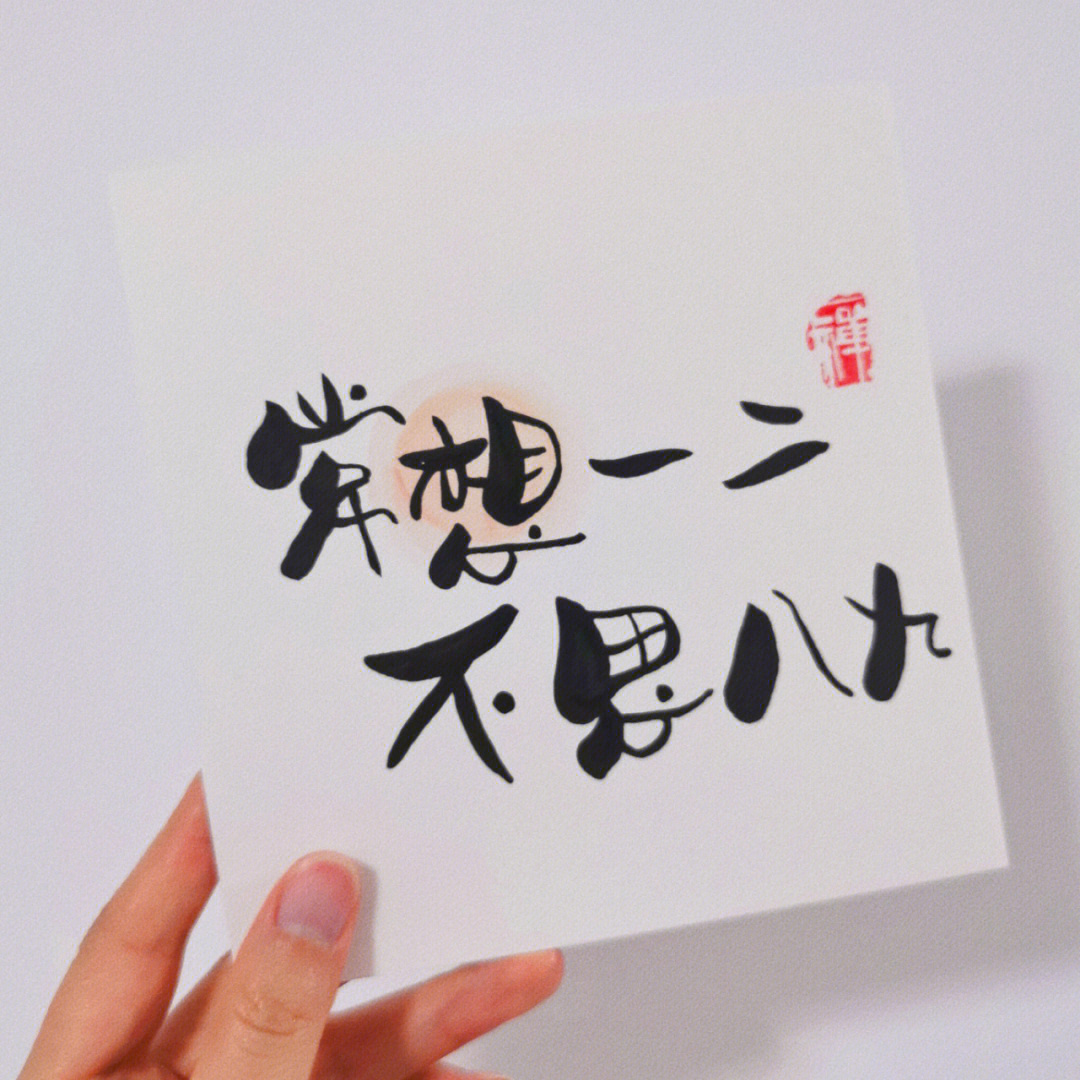 常想一二
不思八九
祥